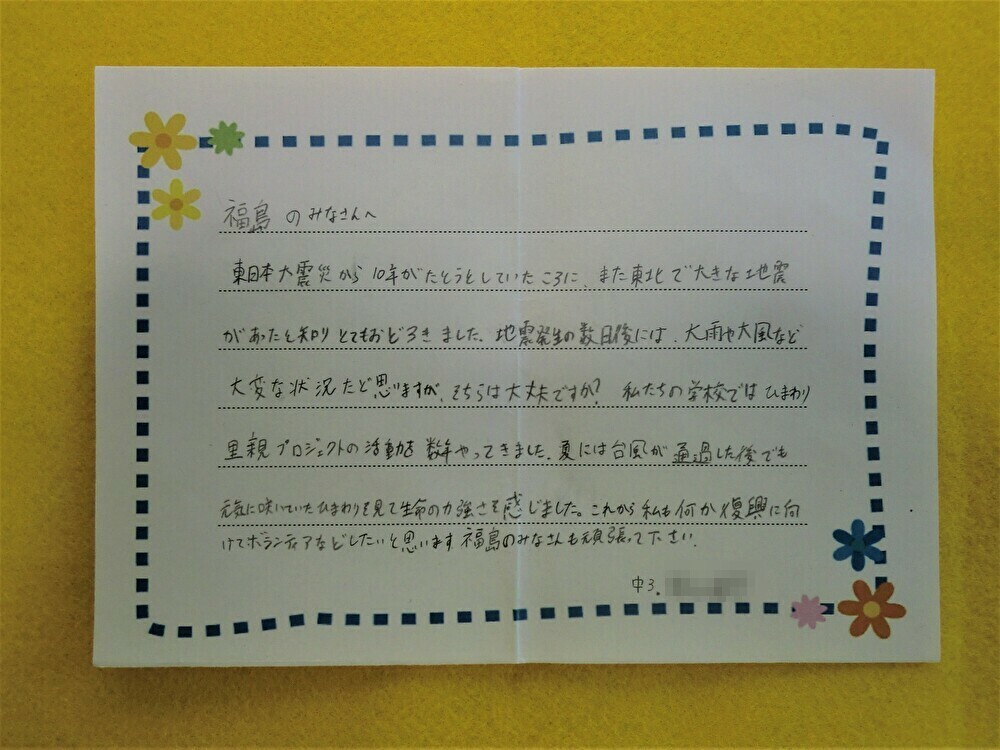 福島のみなさんへ
東日本大震災から10年がたとうとしていたころに、また東北で大きな地震
があったと知りとてもおどろきました。地震発生の数日後には、大雨や大風など
大変な状況だと思いますが、そちらは大丈夫ですか? 私たちの学校ではひまわり
里親プロジェクトの活動を数年やってきました。夏には台風が通過した後でも
元気に咲いていたひまわりを見て生命の力強さを感じました。これから私も何か復興に向
けてボランティアなどしたいと思います。福島のみなさんも頑張って下さい。
中3.